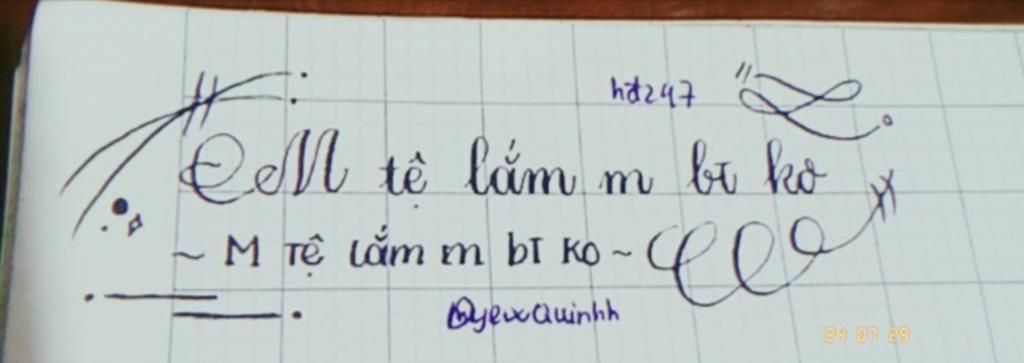 hđz247
M tệ lắm m bt ko
~ M Tệ lắm m bT Ko ~
@yeuxQuinhh
24 07 28